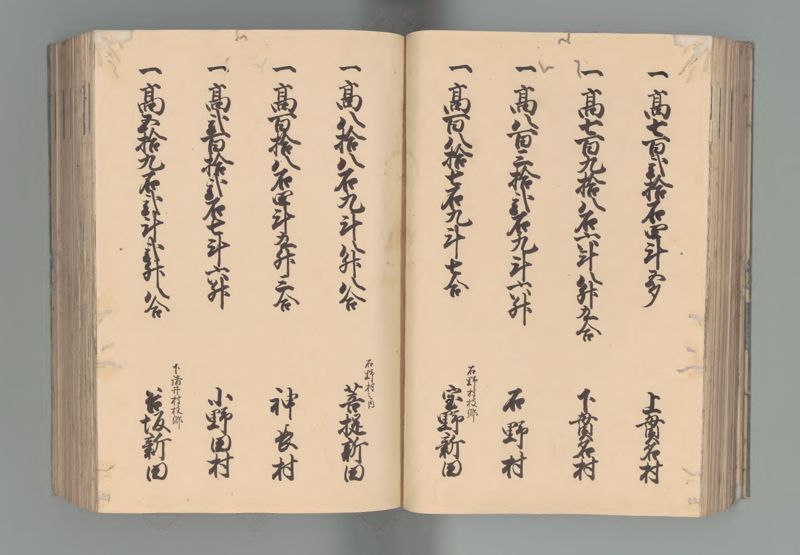 一高七百弐拾石四斗五夕
上貫名村
一高七百九拾八石六斗八升五合
下貫名村
一高八百三拾弐石九斗六升
石野村
一高百八拾七石九斗七合
石野村枝郷
宝野新田
一高八拾八石九斗八升八合
石野村之内
菩提新田
一高百拾八石四斗五升三合
神長村
一高弐百拾弐石七斗六升
小野田村
一高五拾九石弐斗弐升八合
枝郷
坂新田